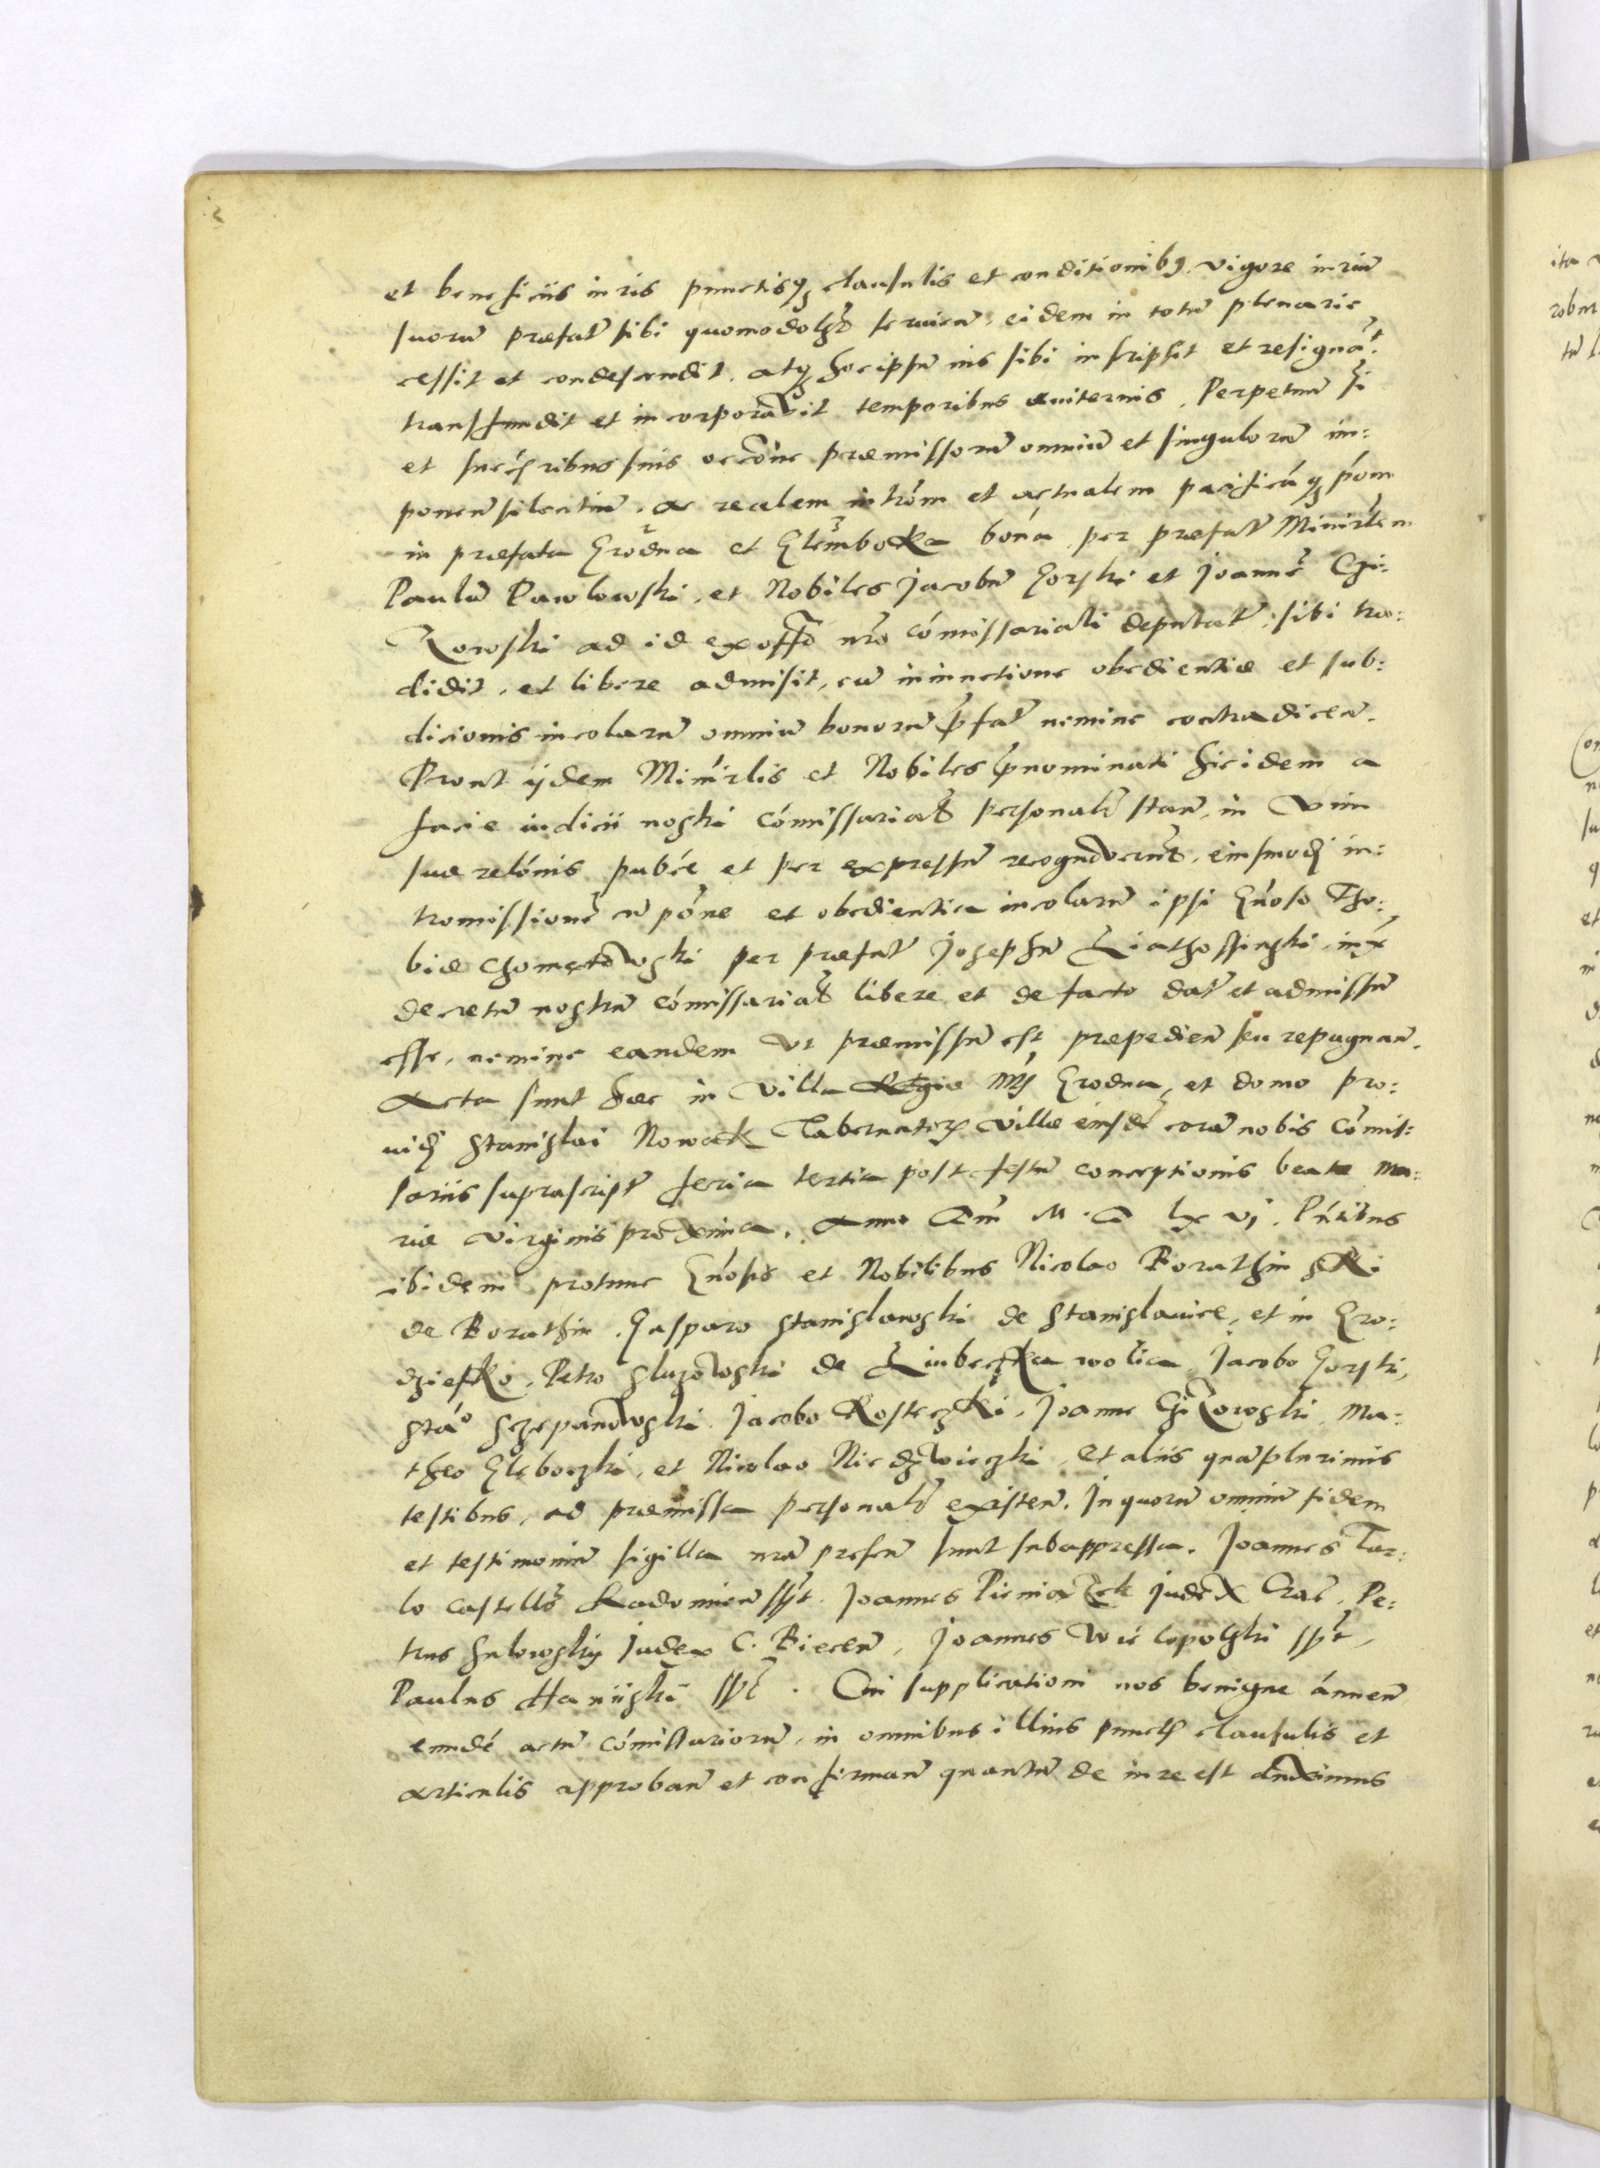 et beneficiis iuris punctisq clausulis et conditionibq vigore iurium
suorum praefat sibi quomodolzt servien. eidem in totum plenarie
cessit et condescendit. atq hoc ipsum ius sibi inscripsit et resignat.
transfundit et incorporavit temporibus aeviternis. Perpetuum
et suis praemissorum omnium et singulorum im:
ponen silentium. ac realem introm et actualem pacificaq pom
in praefata Grodna et Glemboka bona per praefat Minirlem
Paulum Pawlowski, et Nobiles Jacobum Gorski et Joannem Chi:
zowski ad id ex offo nro comissariali deputat, sibi tra:
didit, et libere admisit, cum iniunctione obedientiae et sub:
dicionis incolarum omnium bonorum pfat nemine contradicen.
Prout ijdem Minirlis et Nobiles pnominati hic idem a
facie iudicii nostri comissariat personalr stan, in vim
suae relonis publce et per expressum recognoverunt, eiusmodi in:
tromissione cum pone et obedientia incolarum ipsi Gnoso Tho:
biae Chometowski per praefat Josephum iux
decretum nostrum comissariat libere et de facto dat et admissum
esse, nemine eandem ut praemissum est praepedien seu repugnan.
Acta sunt haec in villa Regia Grodna, et domo pro:
vidi Stanislai Nowak Tabernatoris villae eiusd coram nobis Comis:
sariis suprascript feria tertia post festum conceptionis beatae Ma:
riae Virginis proxima. Anno Dni M. D lx vj. Pntibus
ibidem protunc Gnosis et Nobilibus Nicolao Borathinski
de Borathin. Gasparo Stanislawski de Stanislavice, et in Gro:
dziesko, Petro Sluzowski de wolia, Jacobo Gorski,
Stao Sczepanowski. Jacobo Kosteczki, Joanne Chizowski, Ma:
theo Gleboczki, et Nicolao Niedzwieczki, et aliis quamplurimis
testibus, ad praemissa personalr existen. In quorum omnium fidem
et testimonium sigilla nra presen sunt subappressa. Joannes Tar:
lo Castellus Radomien sst. Joannes Pieniazek Judex Crac. Pe:
trus Sulowsky Judex C. Biecen, Joannes Wielopolski sst,
Paulus sst. Cui supplicationi nos benigne annuen
eunde actum comissariorum, in omnibus illius punctis clausulis et
articulis approban et confirman quantum de iure est duximus